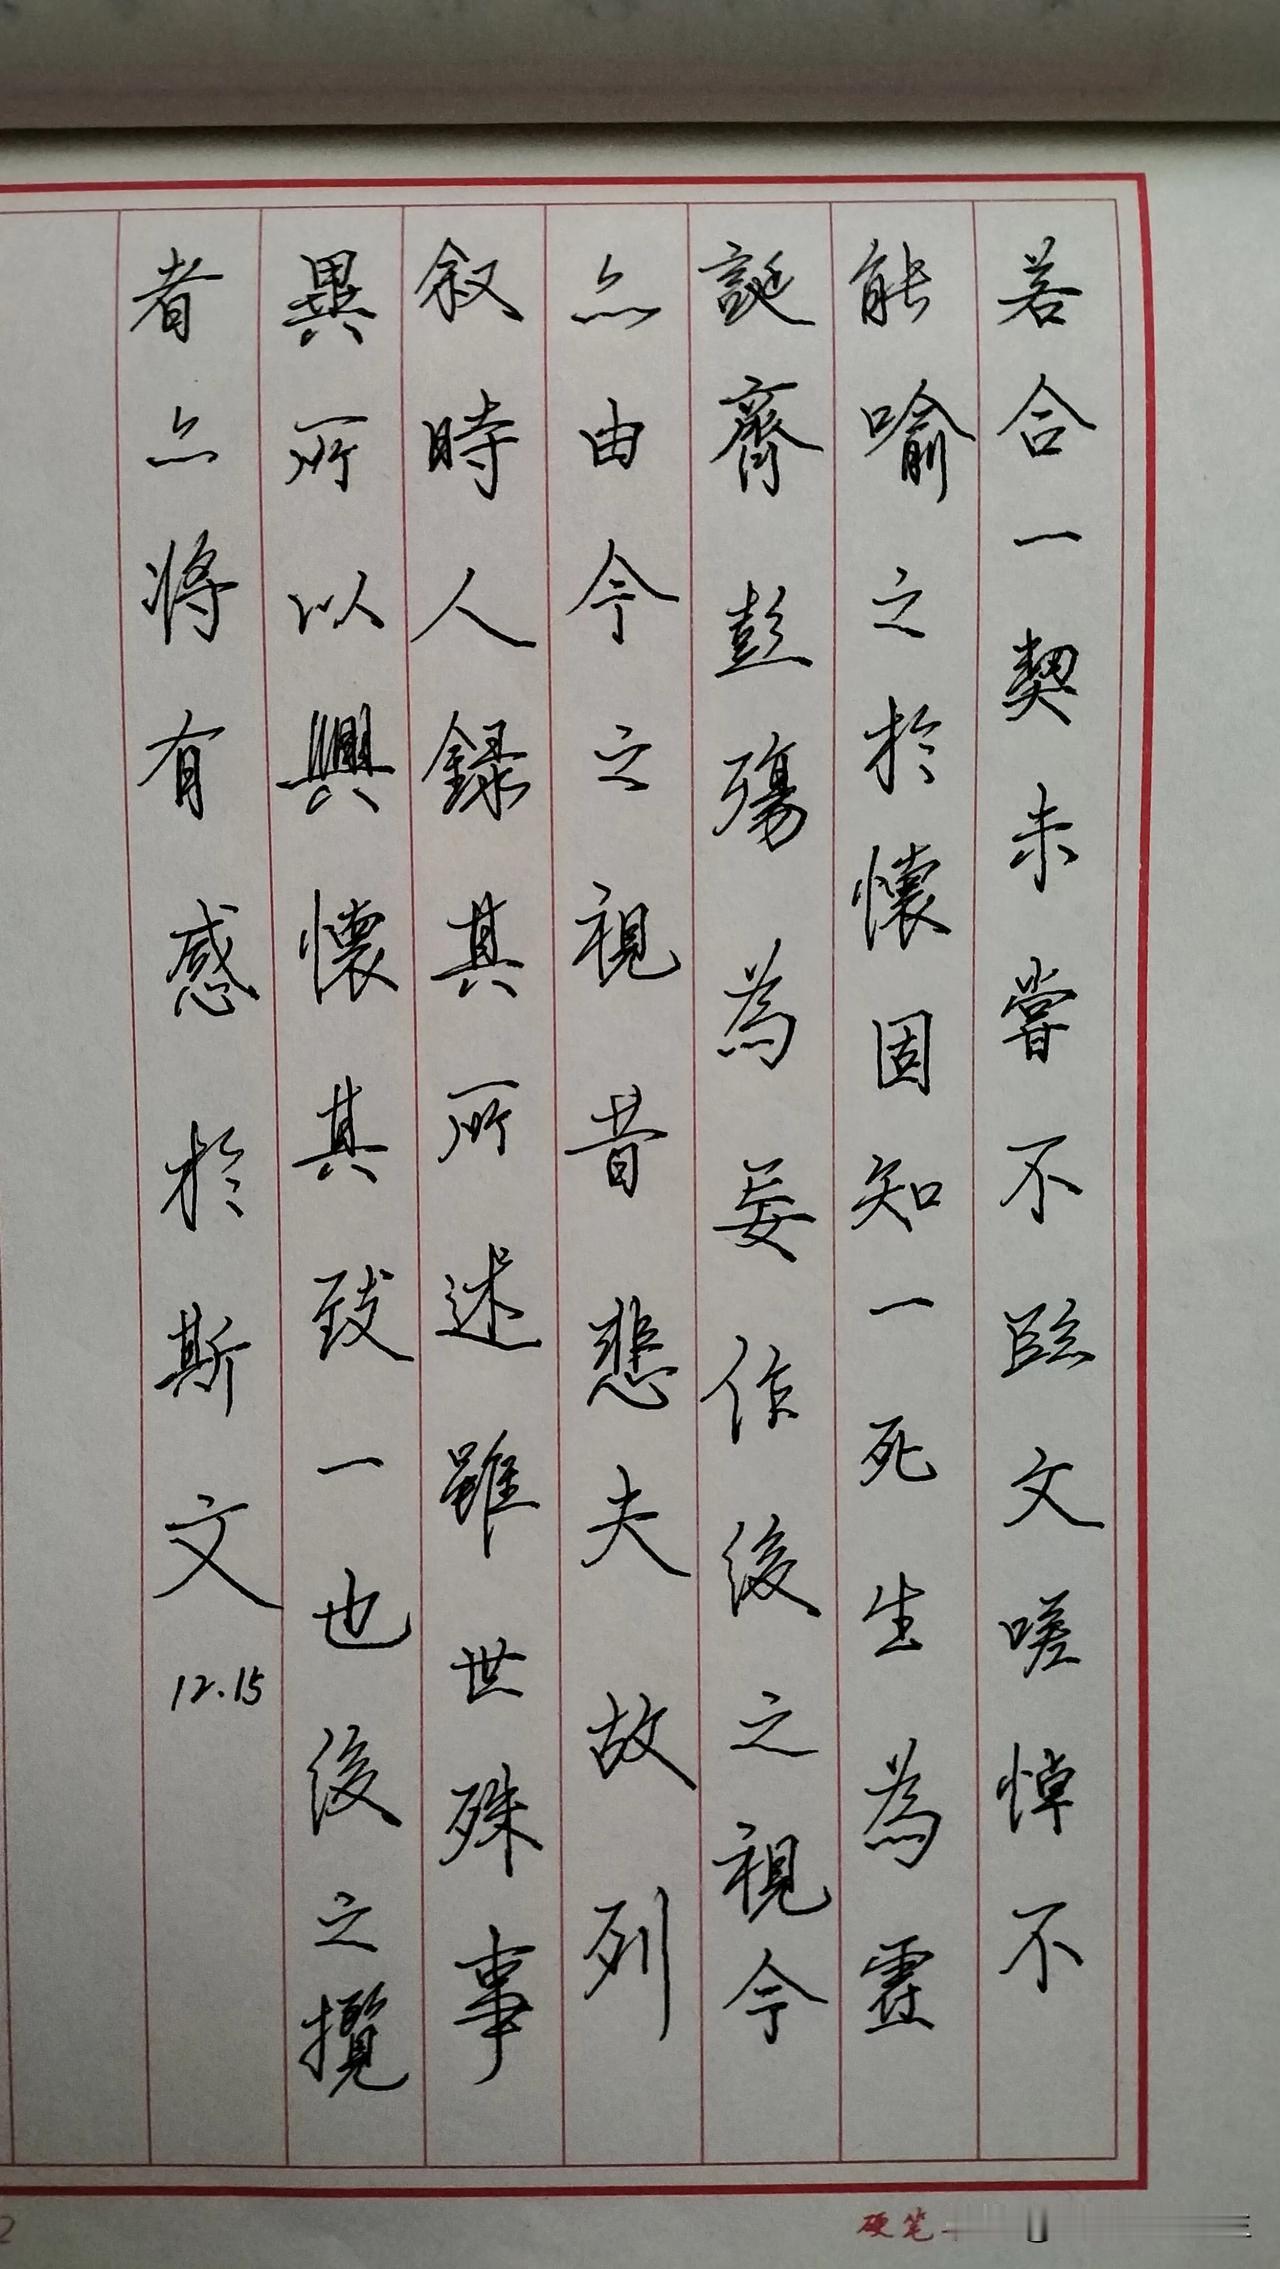 若合一契未嘗不臨文嗟悼不
能喻之於懷固知一死生為虛
誕齊彭殤為妄作後之視今
亦由今之視昔悲夫故列
叙時人録其所述雖世殊事
異所以興懷其致一也後之攬
者亦將有感於斯文
12.15
2
硬笔